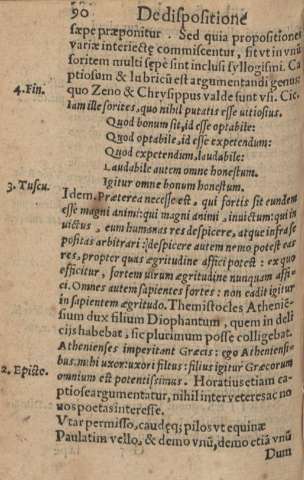 90 De dispositione
sæpe præponitur . Sed quia propositiones
variæ interiectę commiscentur, sit vt in vnũ
soritem multi sępè sint inclusi syllogismi. Ca
ptiosum & lubricũ est argumentandi genus
4. Fin. quo Zeno & Chrysippus valde sunt vsi. Cic.
Iam ille sorites, quo nihil putatis esse uitiosius.
Quod bonum sit, id esse optabile:
Quod optabile, id esse expetendum:
Quod expetendum, laudabile:
Laudabile autem omne honestum.
Igitur omne bonum honestum.
3. Tuscu. Idem. Præterea necesse est, qui fortis sit eundem
esse magni animi: qui magni animi, inuictum: qui in
uictus, eum humanas res despicere, atque infra se
positas arbitrari: despicere autem nemo potest eas
res, propter quas ægritudine affici potest: ex quo
efficitur, fortem uirum ægritudine nunquam affi-
ci. Omnes autem sapientes fortes: non cadit igitur
in sapientem ægritudo. Themistocles Athenië-
sium dux filium Diophantum, quem in deli
cijs habebat, sic plurimum posse colligebat.
Athenienses imperitant Græcis: ego Atheniensi-
bus: mihi uxor: uxori filius: filius igitur Græcorum
2. Episto. omnium est potentissimus. Horatius etiam ca-
ptiose argumentatur, nihil inter veteres ac no
uos poetas interesse.
Vtar permisso, caudęq; pilos vt equinæ
Paulatim vello, & demo vnũ, demo etiã vnũ
Dum